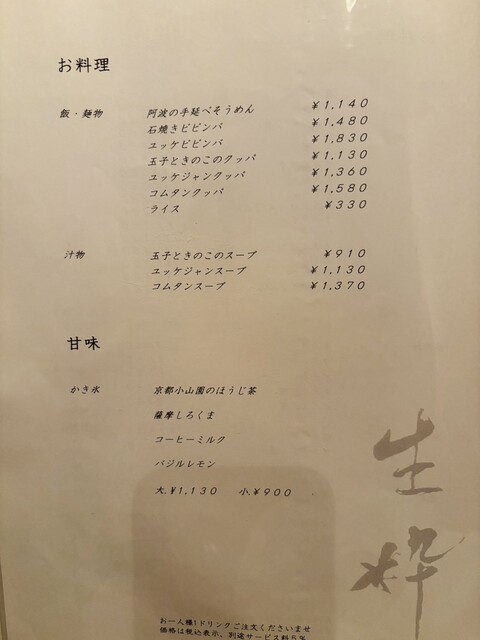 お料理
飯・麺物 阿波の手延べそうめん ¥1,140
石焼きビビンバ ¥1,480
ユッケビビンバ ¥1,830
玉子ときのこのクッパ ¥1,130
ユッケジャンクッパ ¥1,360
コムタンクッパ ¥1,580
ライス ¥330
汁物 玉子ときのこのスープ ¥910
ユッケジャンスープ ¥1,130
コムタンスープ ¥1,370
甘味
かき氷 京都小山園のほうじ茶
薩摩しろくま
コーヒーミルク
バジルレモン
大.¥1,130 小.¥900
生粋
お一人様1ドリンクご注文くださいませ
価格は税込表示、別途サービス料5%